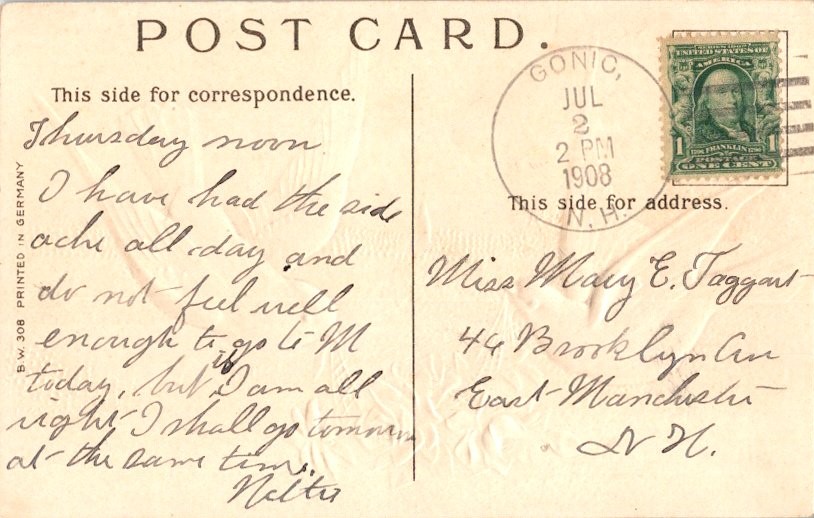 POST CARD.
This side for correspondence.
Thursday noon
I have had the side
ache all day and
do not feel well
enough to go to M
today, but if I am all
right I shall go tomorrow
at the same time.
B.W. 308 PRINTED IN GERMANY
GONIC,
JUL
2
2 PM
1908
N.H.
SERIES 1902
UNITED STATES OF
AMERICA
1 FRANKLIN 1
POSTAGE
ONE CENT
This side for address.
Miss Mary E. Taggart
46 Brooklyn Ave
East Manchester
N H.